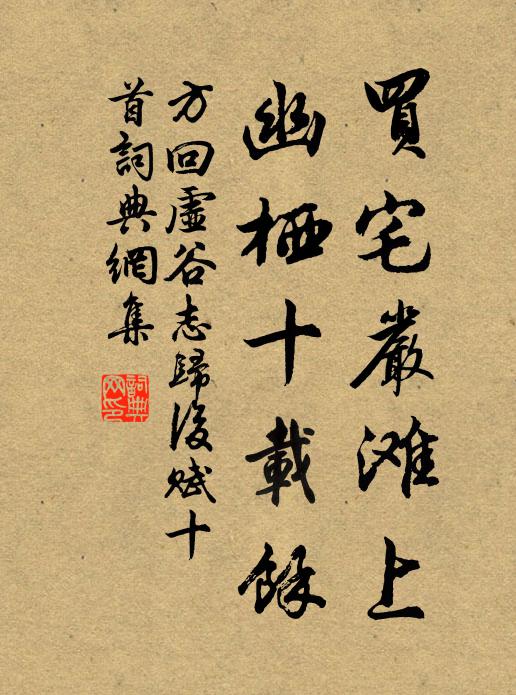 買宅嚴滩上
幽栖十載餘
方回虛谷志歸後賦十
首詞典網集
詞典網印